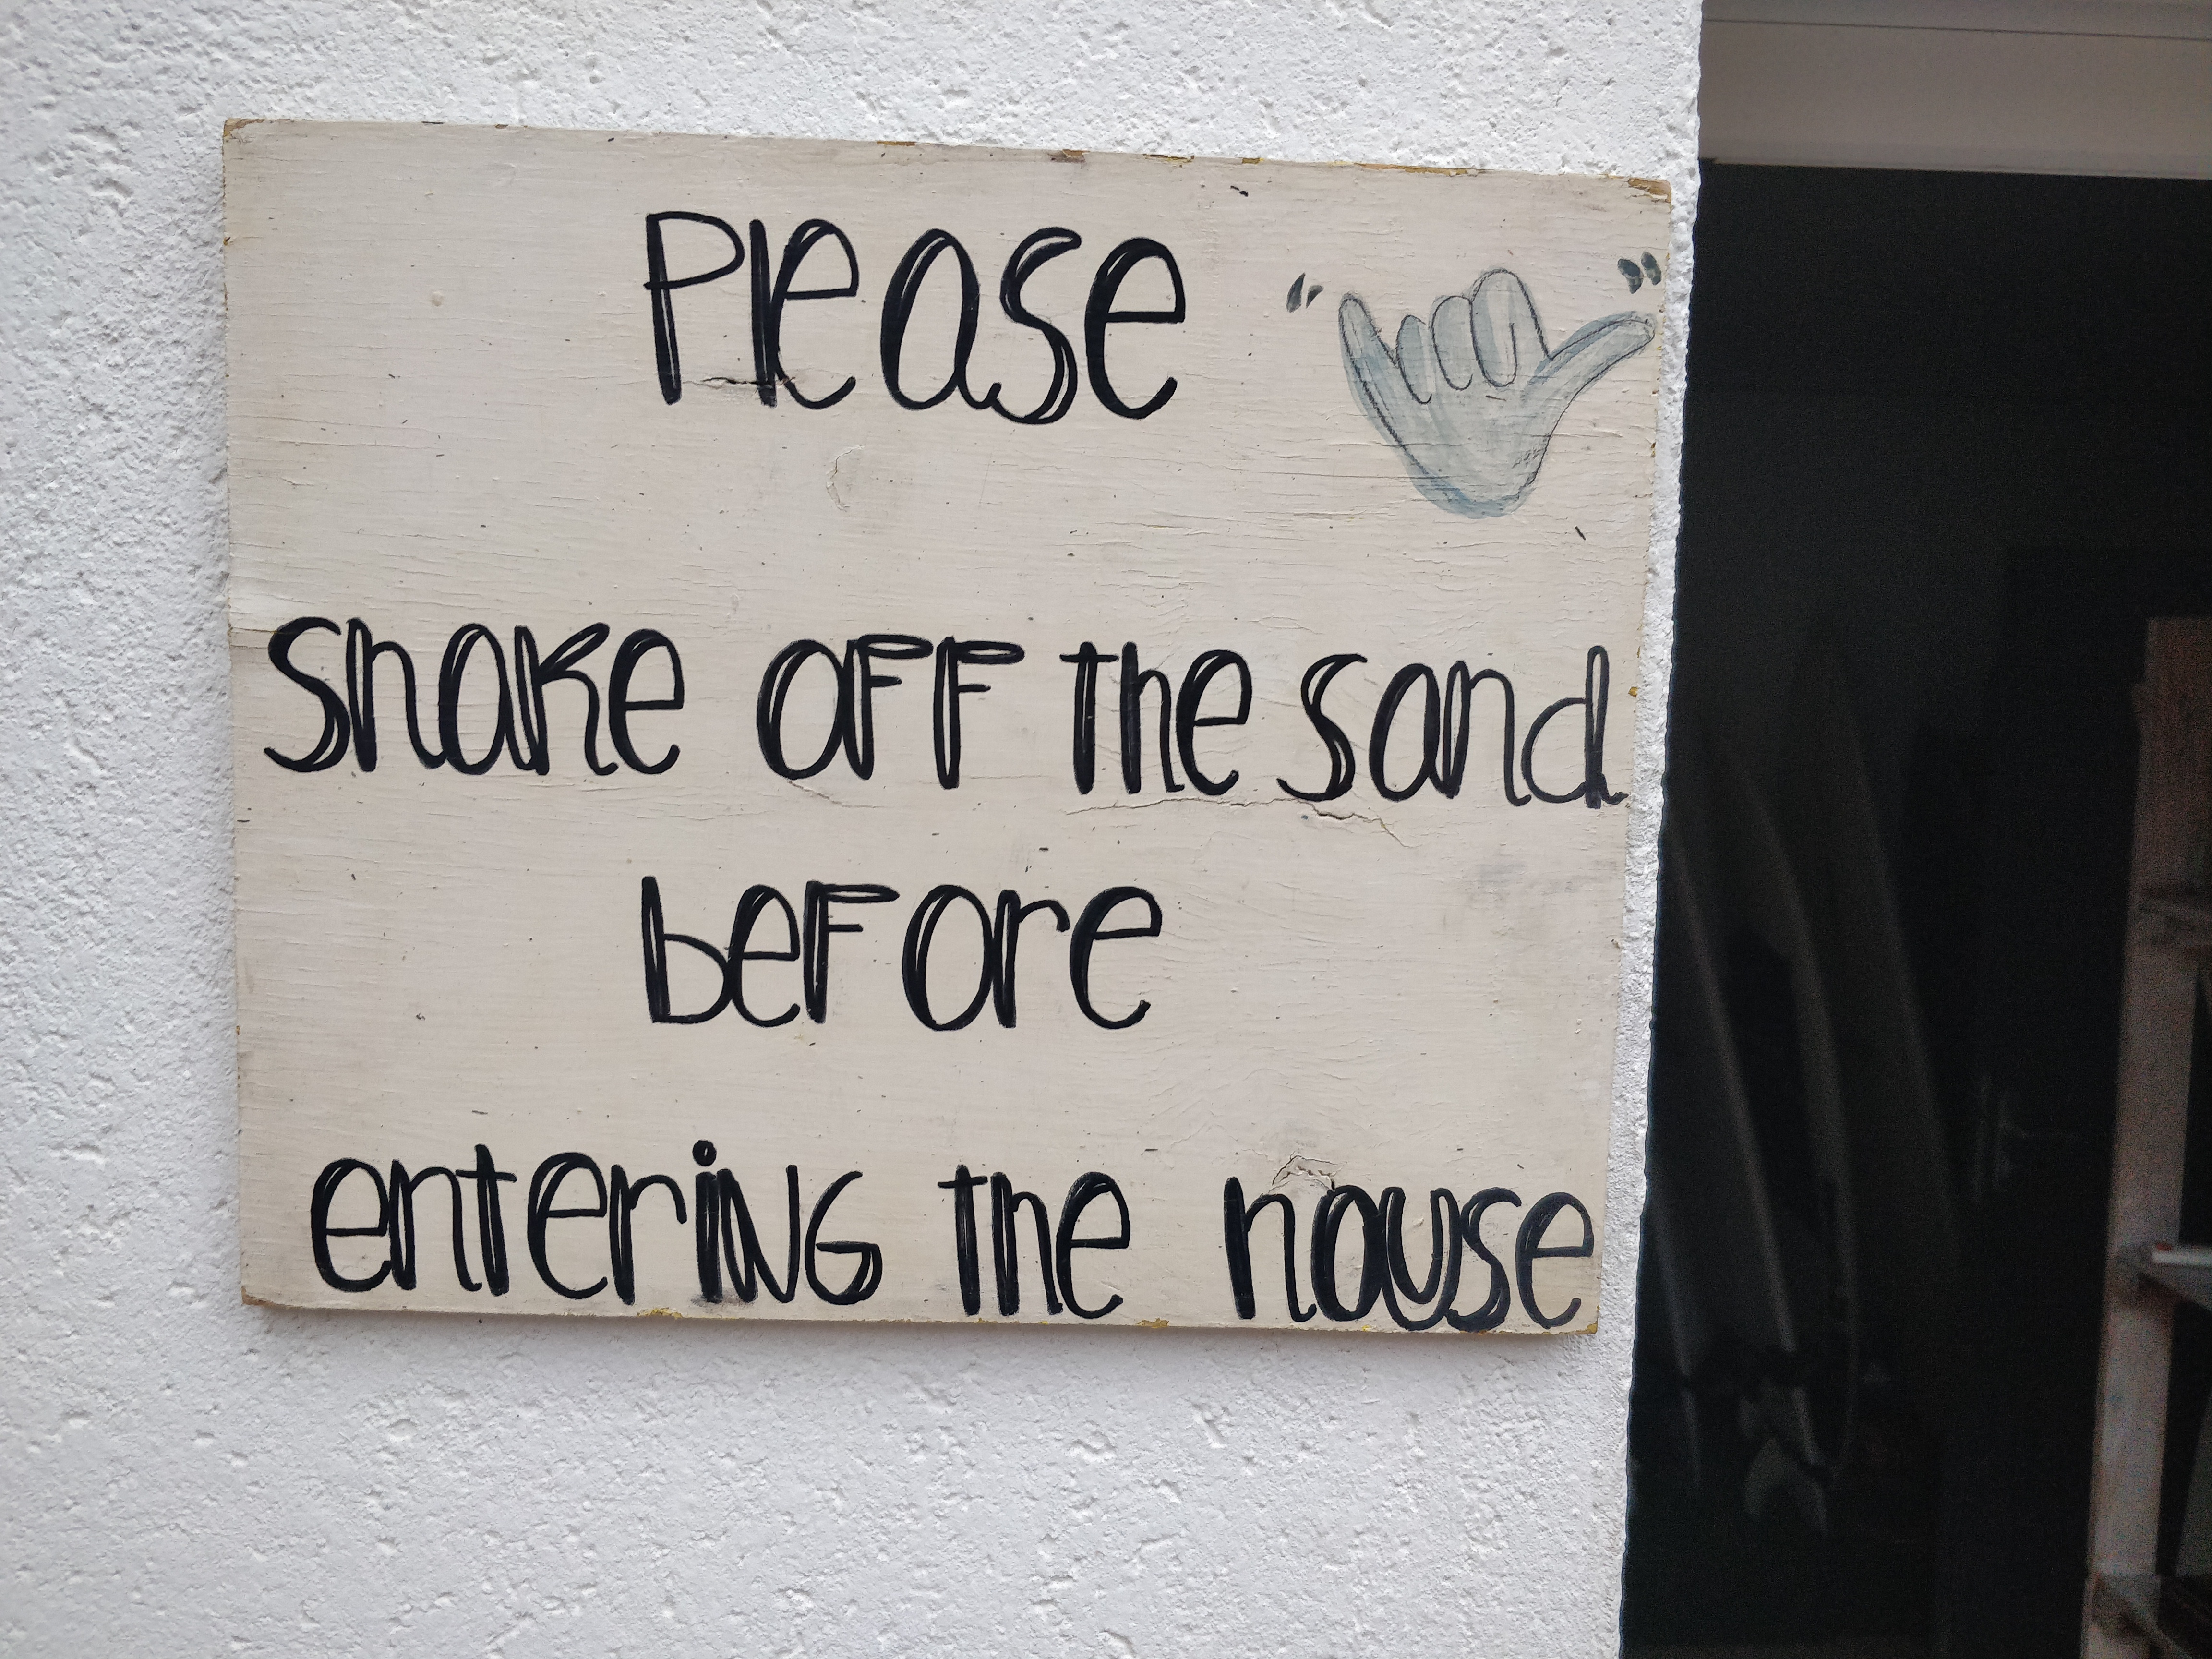 Please " "
shake off the sand
before
entering the house